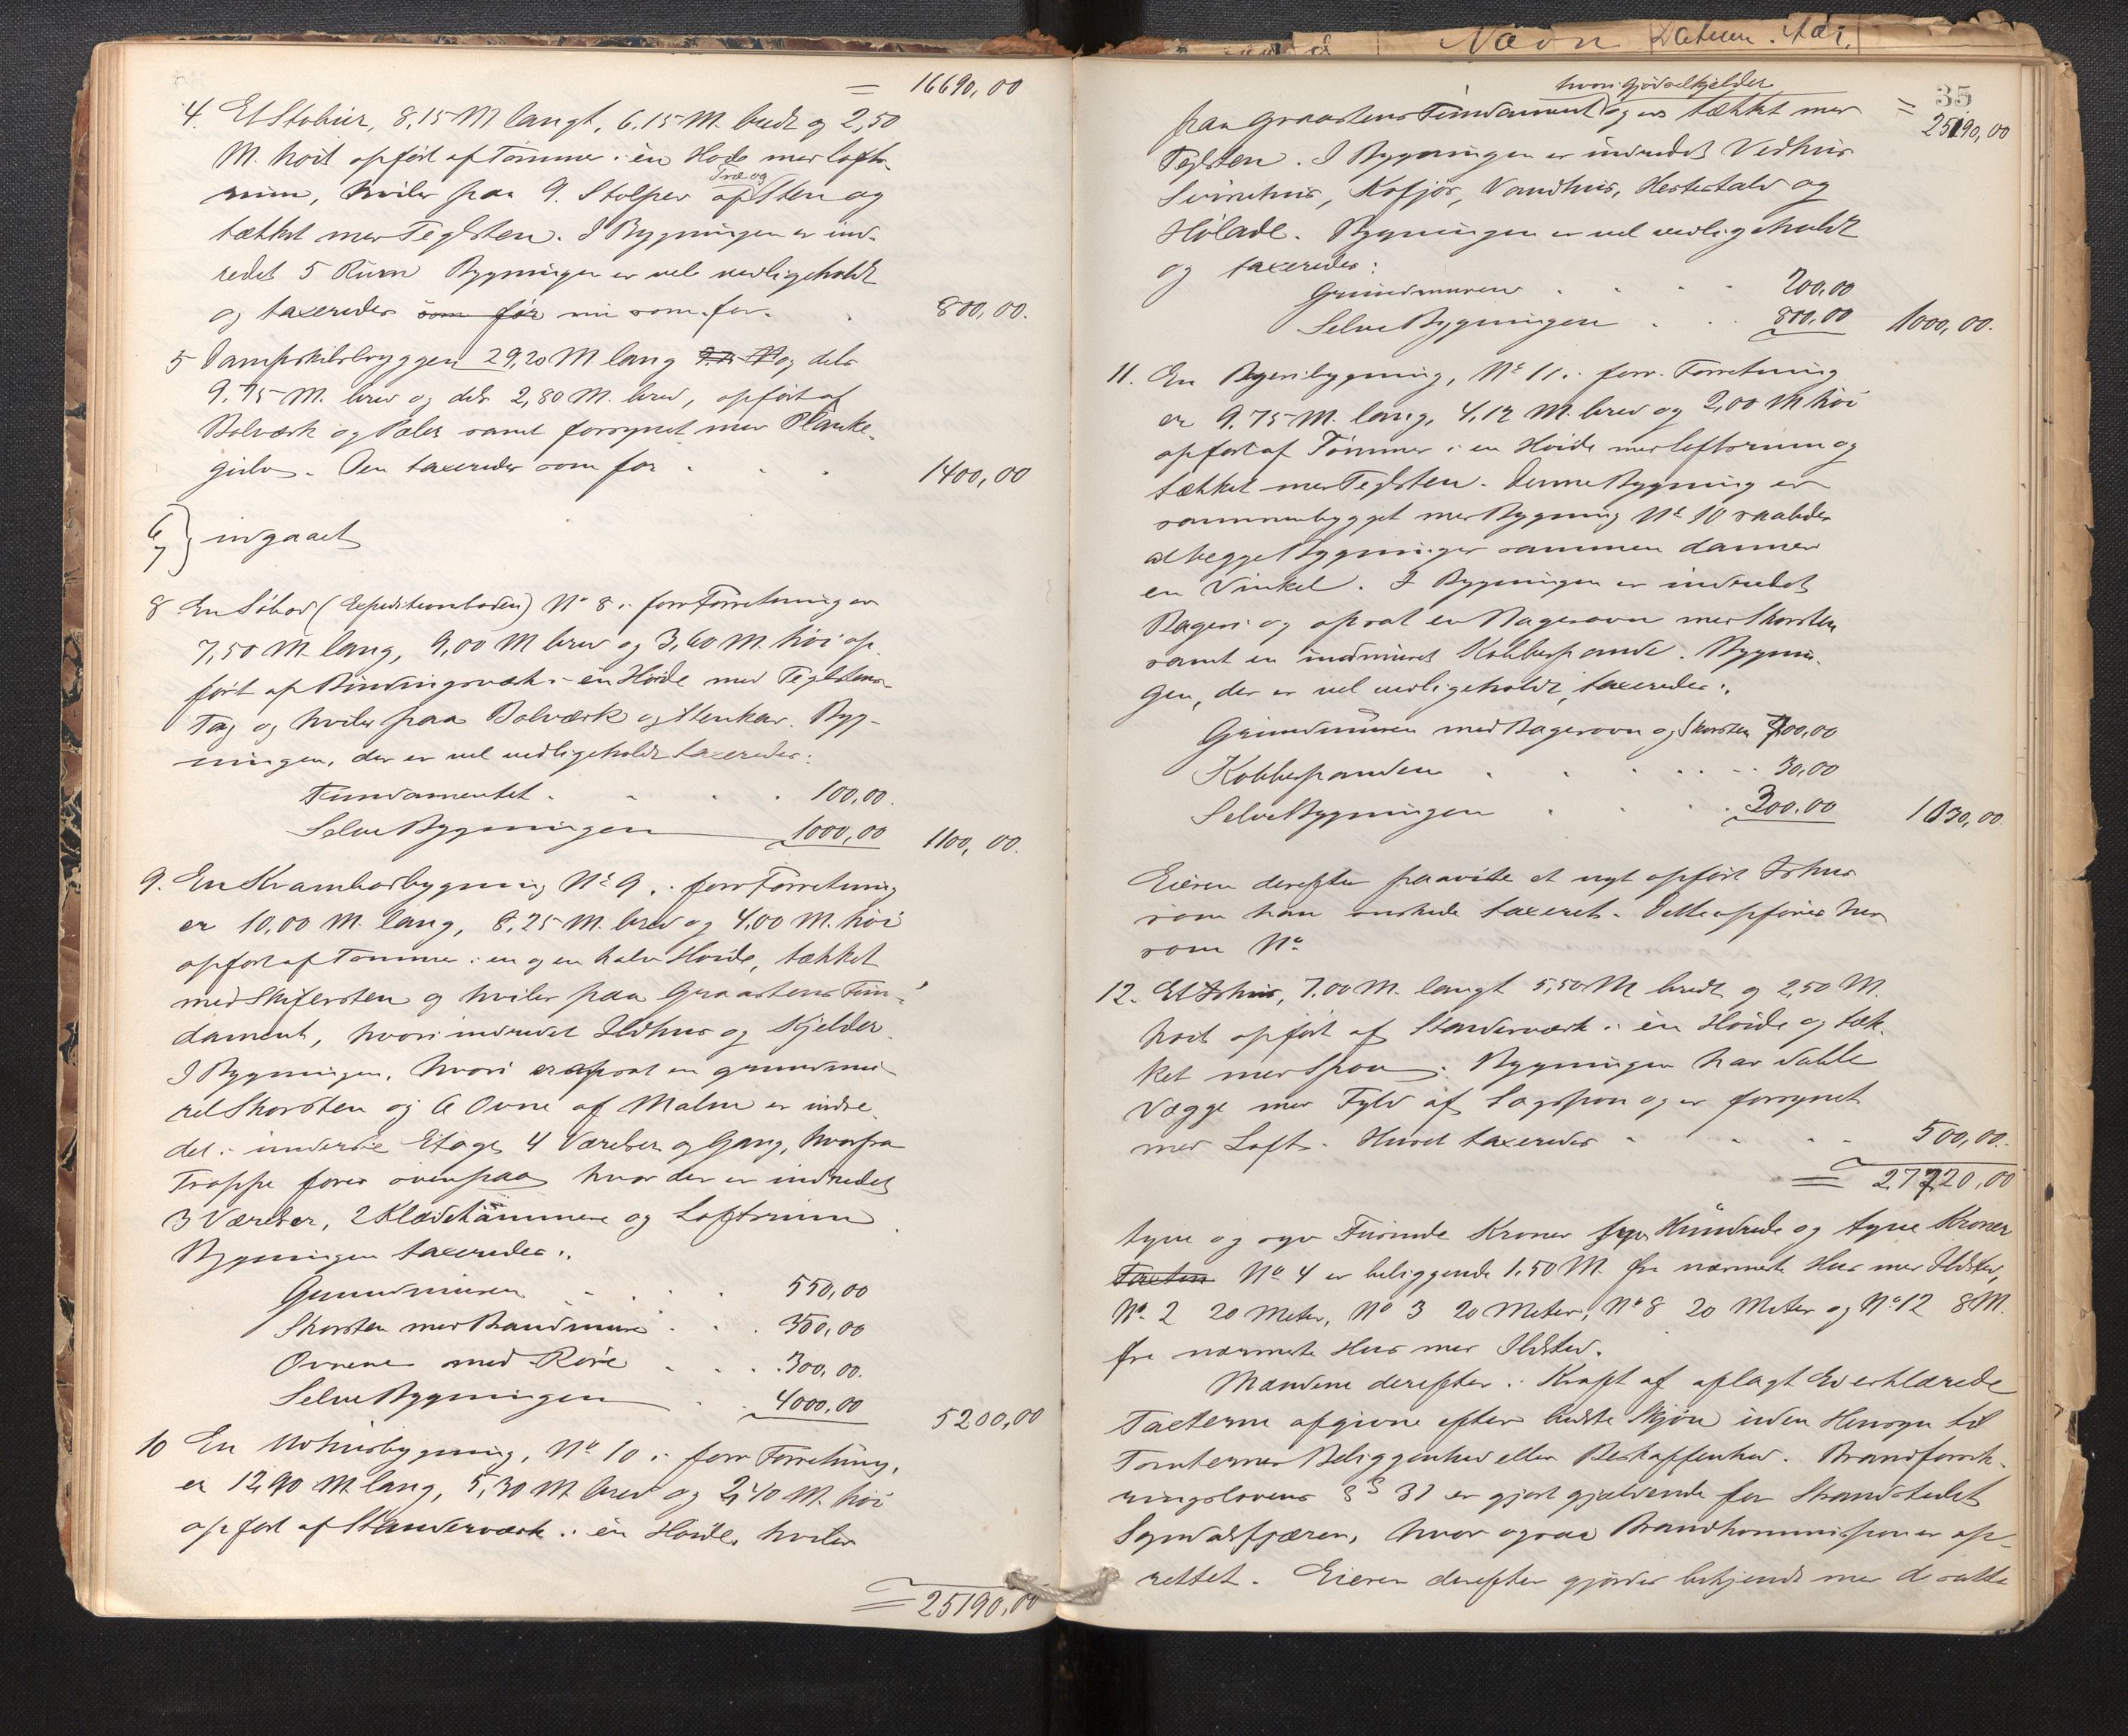 = 16690,00
4. Et Stabur, 8,15 M langt, 6,15 M. bredt og 2,50
M. høit opført af Tømmer i én Høide med lofts-
rum, hviler paa 9 Stolper af Træ og Sten og
tækket med Teglsten. I Bygningen er ind-
redet 5 Rum Bygningen er vel vedligeholdt
og taxeredes som før nu som før. 800,00.
5 Dampskibsbryggen 29,20 M lang og dels
9,75 M. bred og dels 2,80 M. bred, opført af
Bolværk og Pæler samt forsynet med Planke-
gulv. Den taxeredes som før 1400,00
6
7 } indgaaet
8 En Søbod (Expeditionsboden) No 8 i forr Forretning er
7,50 M. lang, 9,00 M bred og 3,60 M. høi op-
ført af Bindingsværk i én Høide med Teglstens-
Tag og hviler paa Bolværk og Stenkar. Byg-
ningen, der er vel vedligeholdt taxeredes:
Fundamentet 100,00.
Selve Bygningen 1000,00 1100,00.
9. En Krambodbygning No 9 i forr Forretning
er 10,00 M. lang, 8,25 M. bred og 4,00 M. høi
opført af Tømmer i en og en halv Høide, tækket
med Skifersten og hviler paa Graastens Fun-
dament, hvori indredet Ildhus og Kjelder.
I Bygningen, hvori er opsat en grundmu-
ret Skorsten og 6 Ovne af Malm er indre-
det i underste Etage 4 Værelser og Gang, hvorfra
Trappe fører ovenpaa hvor der er indredet
3 Værelser, 2 Klædekammere og Loftsrum
Bygningen taxeredes:
Grundmuren 550,00
Skorsten med Brandmure 350,00
Ovnene med Røre 300,00.
Selve Bygningen 4000,00 5200,00
10 En Udhusbygning, No 10 i forr Forretning,
er 12,90 M. lang, 5,30 M. bred og 2,40 M. høi
opført af Stænderværk i én Høide, hviler
= 25190,00
Navn Datum. Aar.
35
hvori Gjødselkjelder
paa Graastens Fundament og er tækket med = 25190,00
Teglsten. I Bygningen er indredet Vedhus
Svinehus, Kofjøs, Vandhus, Hestestald og
Hølade. Bygningen er vel vedligeholdt
og taxeredes:
Grundmuren 200,00
Selve Bygningen 800,00 1000,00.
11. En Bageribygning, No 11 i forr. Forretning
er 9,75 M. lang, 4,12 M. bred og 2,00 M høi
opført af Tømmer i en Høide med loftsrum og
tækket med Teglsten. Denne Bygning er
sammenbygget med Bygning No 10 saaledes
at begge Bygninger sammen danner
en Vinkel. I Bygningen er indredet
Bageri og opsat en Bagerovn med Skorsten
samt en indmuret Kobberpande. Bygnin-
gen, der er vel vedligeholdt, taxeredes:
Grundmuren med Bagerovn og Skorsten 700,00
Kobberpanden 30,00
Selve Bygningen 300.00 1030,00.
Eieren derefter paaviste et nyt opført Ishus
som han ønskede taxeret. Dette opføres her
som No
12. Et Ishus, 7.00 M. langt 5,50 M bredt og 2,50 M.
høit opført af Stænderværk i én Høide og tæk-
ket med Spon. Bygningen har dobble
Vægge med Fyld af Sagspon og er forsynet
med Loft. Huset taxeredes 500,00.
= 27720,00
tyve og syv Tusinde Kroner syv Hundrede og tyve Kroner
Taxten No 4 er beliggende 1,50 M. fra nærmeste Hus med Ildsted,
No. 2 20 Meter, No 3 20 Meter, No 8 20 Meter og No 12 8 M.
fra nærmeste Hus med Ildsted.
Mændene derefter i Kraft af aflagt Ed erklærede
Taxterne afgivne efter bedste Skjøn uden Hensyn til
Tomternes Beliggenhed eller Beskaffenhed. Brandforsik-
ringslovens § 31 er gjort gjældende for Strandstedet
Sogndalsfjæren, hvor ogsaa Brandkommission er op-
rettet. Eieren derefter gjordes bekjendt med de satte